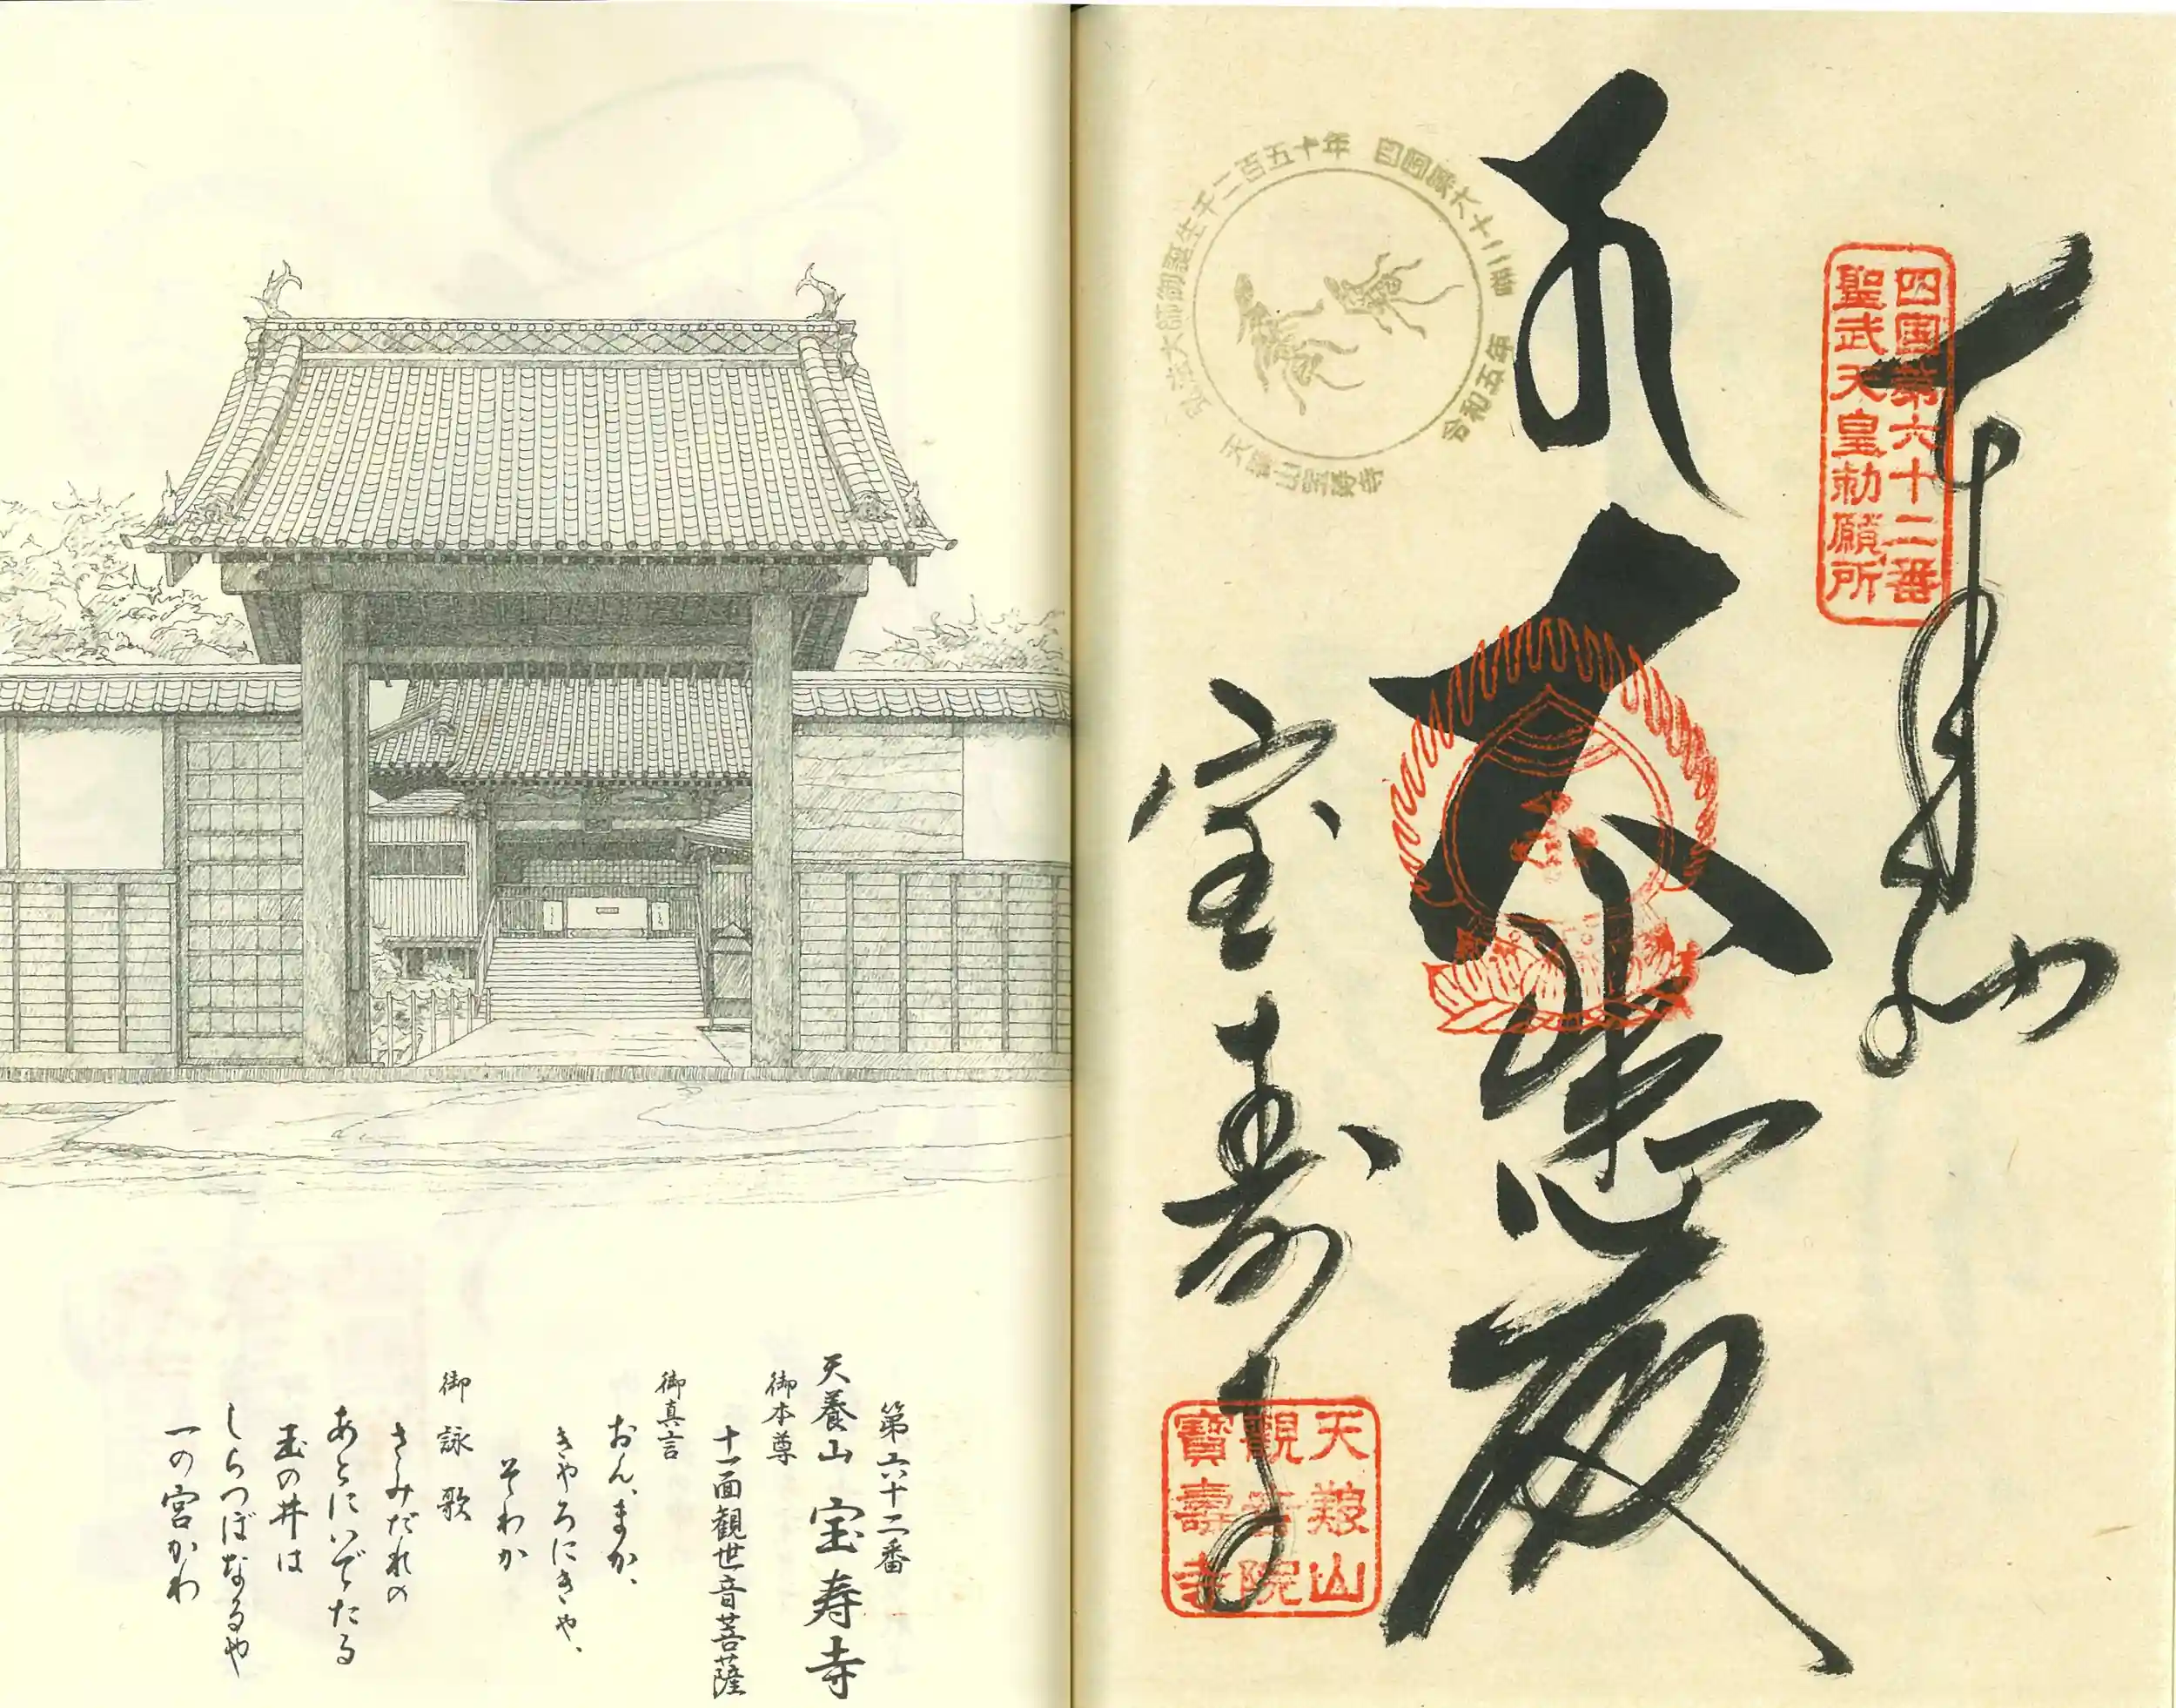 奉拝
四国第六十二番
聖武天皇勅願所
大悲殿
宝寿寺
弘法大師御誕生千二百五十年
四国第六十二番
令和五年
天養山宝寿寺
天養山
観音院
寶壽寺
第六十二番
天養山 宝寿寺
御本尊
十一面観世音菩薩
御真言
おん、まか、
きやろにきや、
そわか
御詠歌
さみだれの
あとにいでたる
玉の井は
しらつぼなるや
一の宮かわ